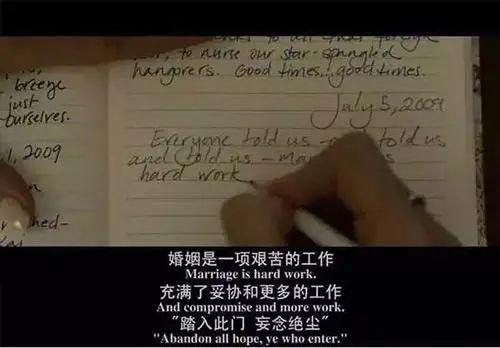 to nurse our star-spangled
hangovers. Good times...good times.
July 5, 2009
Everyone told us - told us
and told us -
hard work
breeze
just
ourselves.
2009
婚姻是一项艰苦的工作
Marriage is hard work.
充满了妥协和更多的工作
And compromise and more work.
"踏入此门 妄念绝尘"
"Abandon all hope, ye who enter."